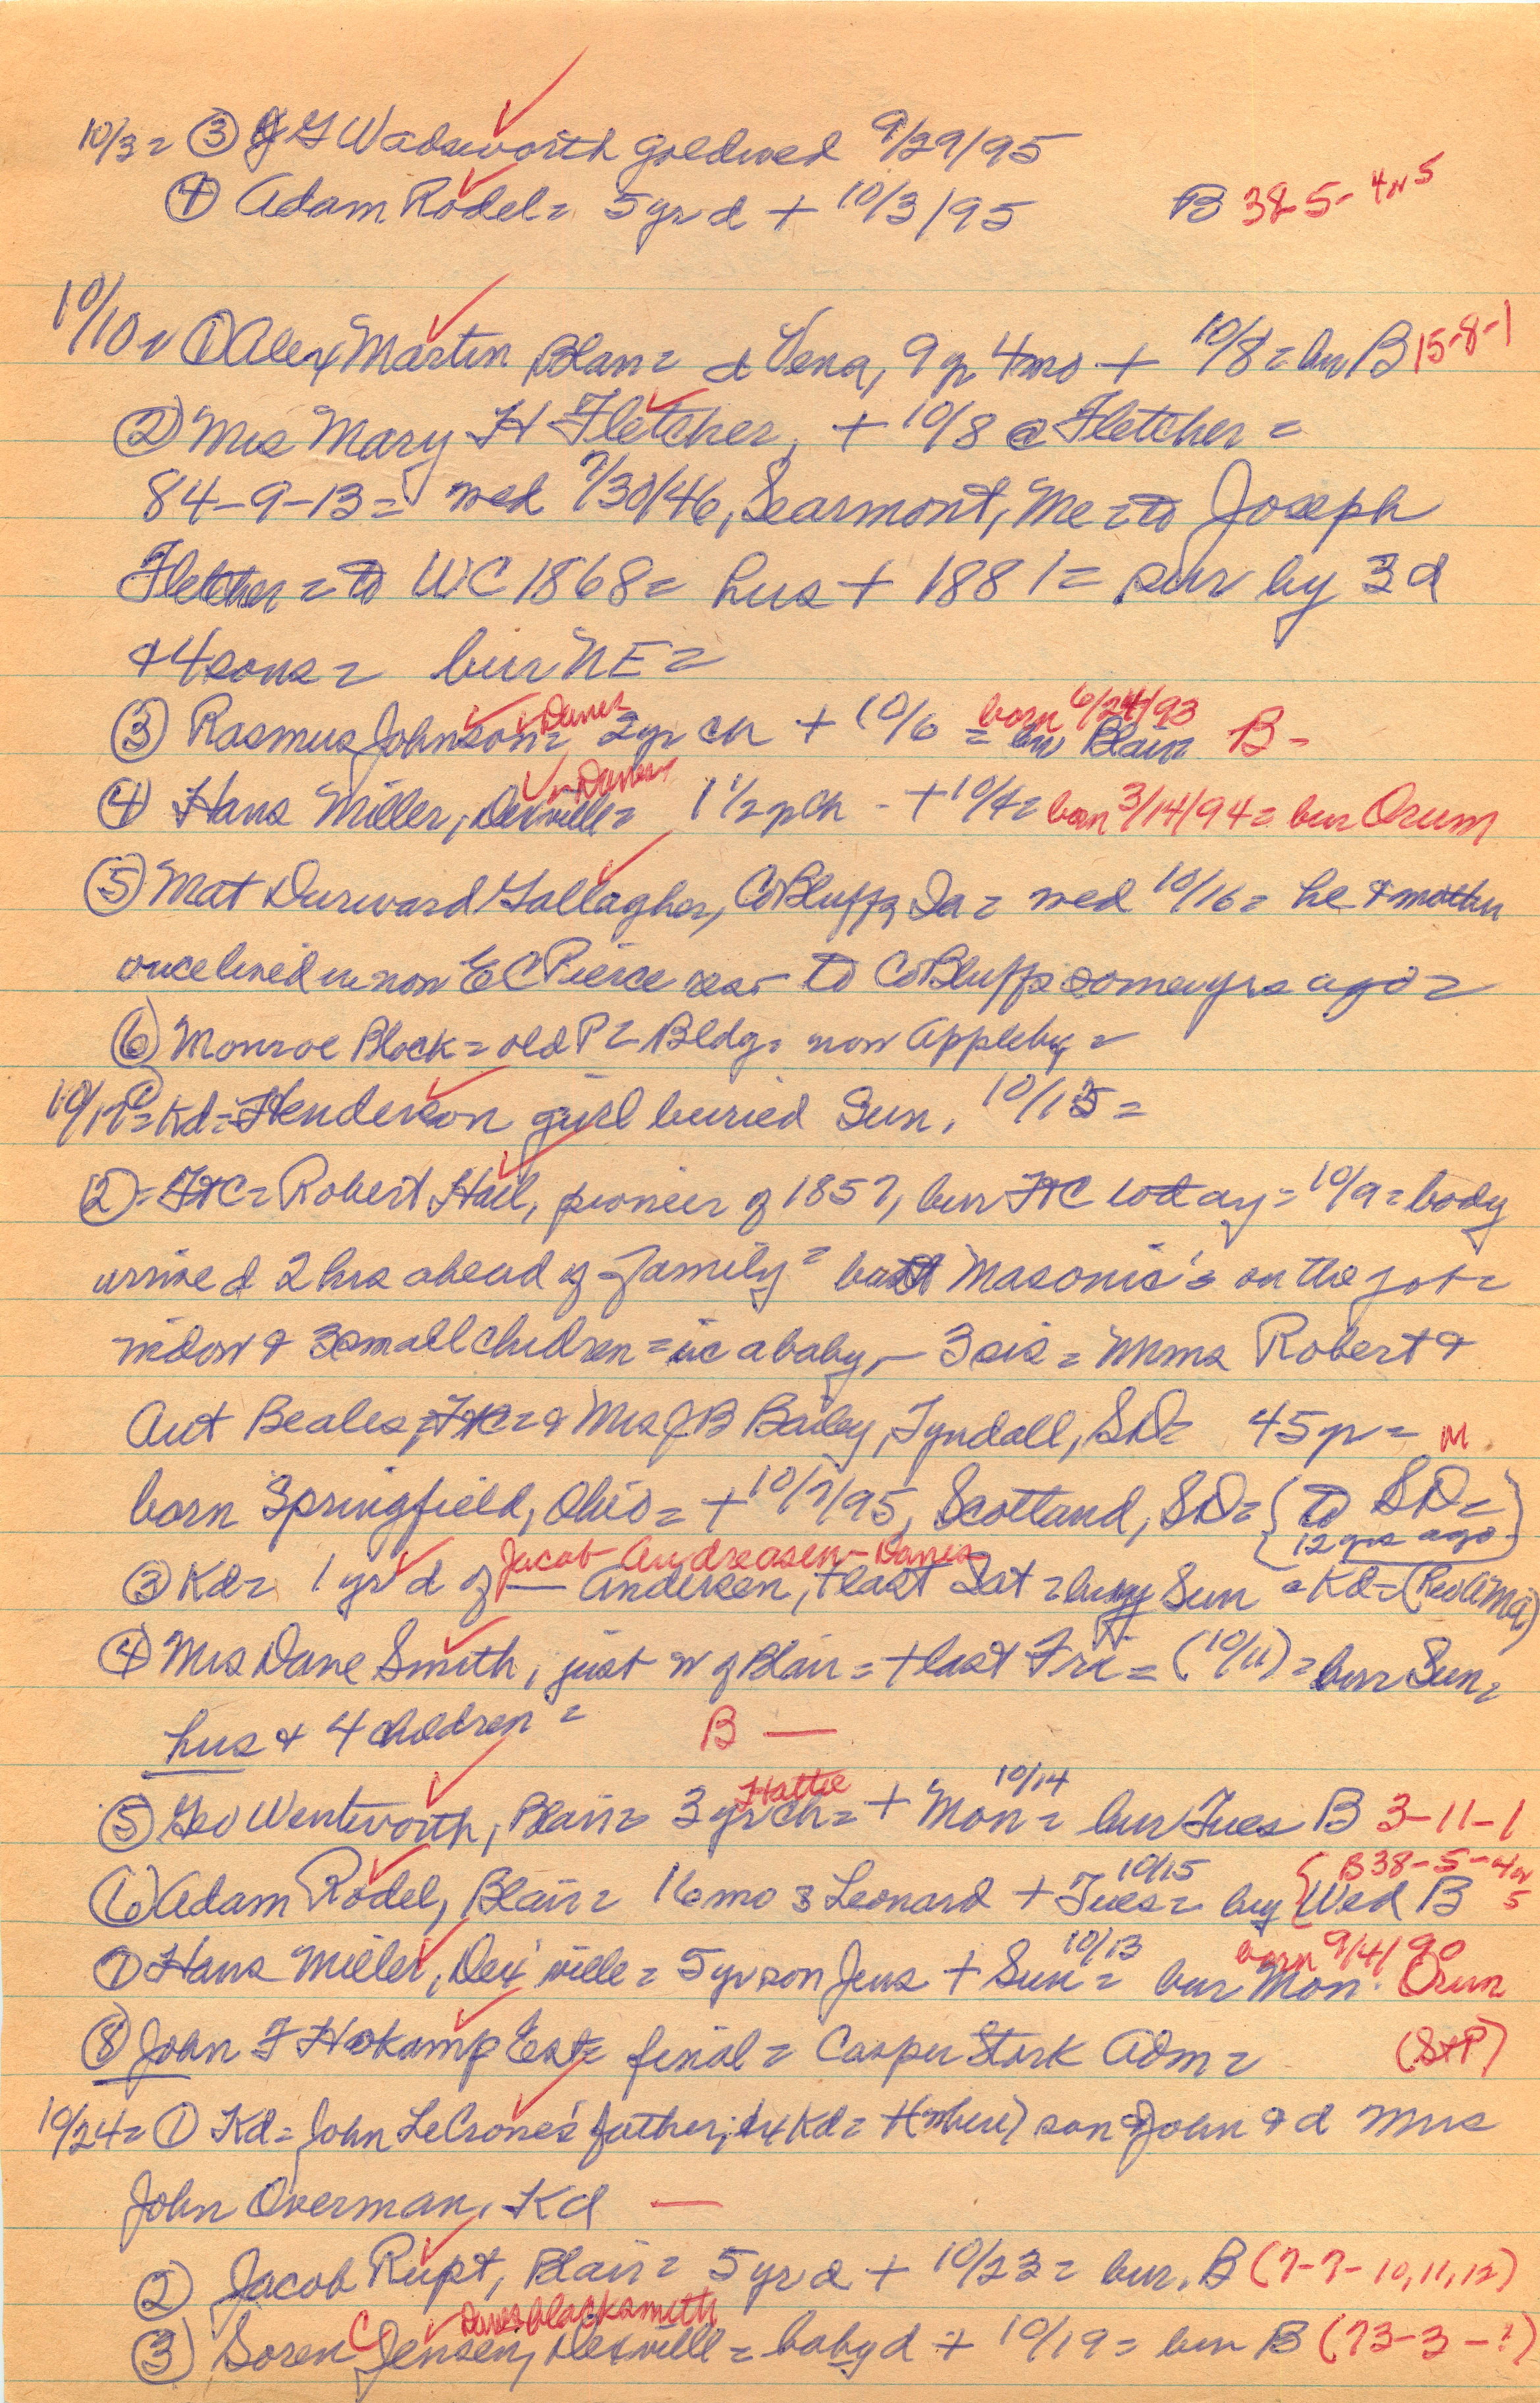 10/3 = ③ J G Wadsworth goldwed 9/29/95
④ Adam Rodel = 5 yr d + 10/3/95 B 38-5-4 or 5
10/10 = ① Alex Martin Blair = d Vena, 9 yr 4 mo + 10/8 = bur B 15-8-1
② Mrs Mary H Fletcher, + 10/8 @ Fletcher =
84-9-13 = wed 7/30/46, Searmont, Me = to Joseph
Fletcher = to WC 1868 = hus + 1881 = sur by 3 d
& 4 sons = bur NE =
born 6/24/93
③ Rasmus Johnson = Danes 2 yr ch + 10/6 = bur Blair B -
④ Hans Miller, Dexville = Danes 1 1/2 yr ch - + 10/4 = born 3/14/94 = bur Orum
⑤ Mat Durward Gallagher, Co Bluffs, Ia = wed 10/16 = he & mother
once lived in now E C Pierce res - to Co Bluffs some yrs ago =
⑥ Monroe Block = old P Bldg = now Appleby =
10/17 = Kd = Henderson girl buried Sun, 10/13 =
② = FtC = Robert Hall, pioneer of 1857, bur FtC today = 10/9 = body
arrived 2 hrs ahead of family = but Masonic's on the job =
widow & 3 small children = inc a baby, - 3 sis = Mmes Robert &
Aut Beales, FtC = & Mrs J B Bailey, Tyndall, SD = 45 yr = M
born Springfield, Ohio = + 10/7/95, Scotland, SD = { to SD =
12 yrs ago }
Jacob Andreasen - Danes
③ Kd = 1 yr d of — Andersen, + last Sat = bury Sun = Kd =
④ Mrs Dane Smith, just w of Blair = + last Fri = (10/11) = bur Sun =
hus & 4 children = B —
Hattie 10/14
⑤ Geo Wentworth, Blair = 3 yr ch = + Mon = bur Tues B 3-11-1
10/15 { B 38-5-4 or 5
⑥ Adam Rodel, Blair = 16 mo s Leonard + Tues = bury Wed B
10/13 born 9/4/90
⑦ Hans Miller, Dex'ville = 5 yr son Jens + Sun = bur Mon. Orum
⑧ John F Hokamp Est = final = Casper Stork Adm = (StP)
10/24 = ① Kd = John LeCrone's father, by Kd = son John & d Mrs
John Overman, Kd —
② Jacob Rupt, Blair = 5 yr d + 10/23 = bur. B (7-7-10,11,12)
Danes blacksmith
③ Soren C Jensen, Dexville = baby d + 10/19 = bur B (73-3-?)